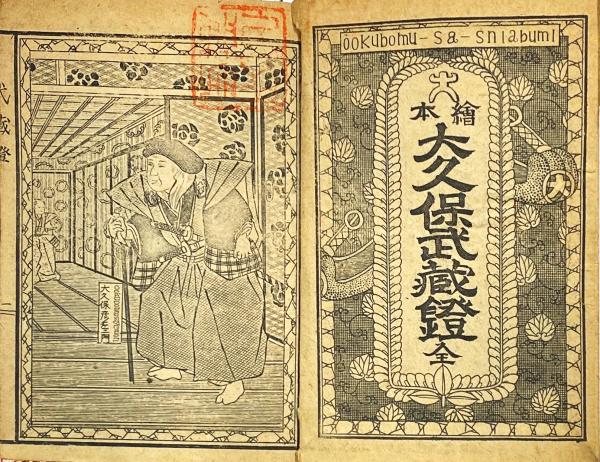 ŌOKUBOMU-SA-SNIABUMI
繪本
大久保武藏鐙 全
大久保彦左エ門
武藏鐙